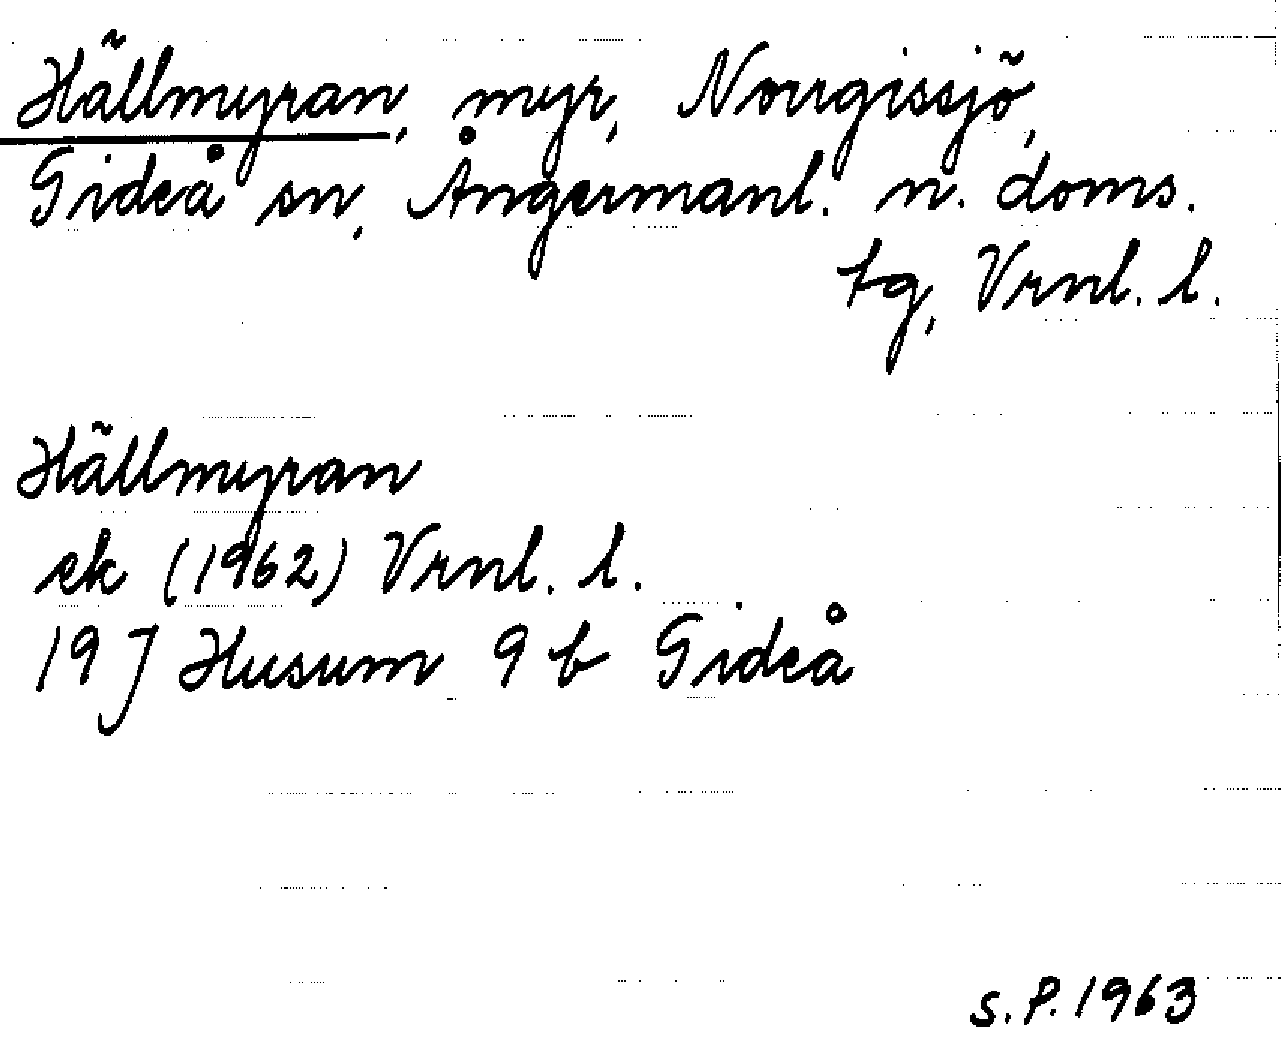 Hällmyran, myr, Norrgissjö,
Gideå sn, Ångermanl. n. doms.
tg, Vrnl. l.
Hällmyran
ek (1962) Vrnl. l.
19 J Husum 9 b Gideå
S.P. 1963